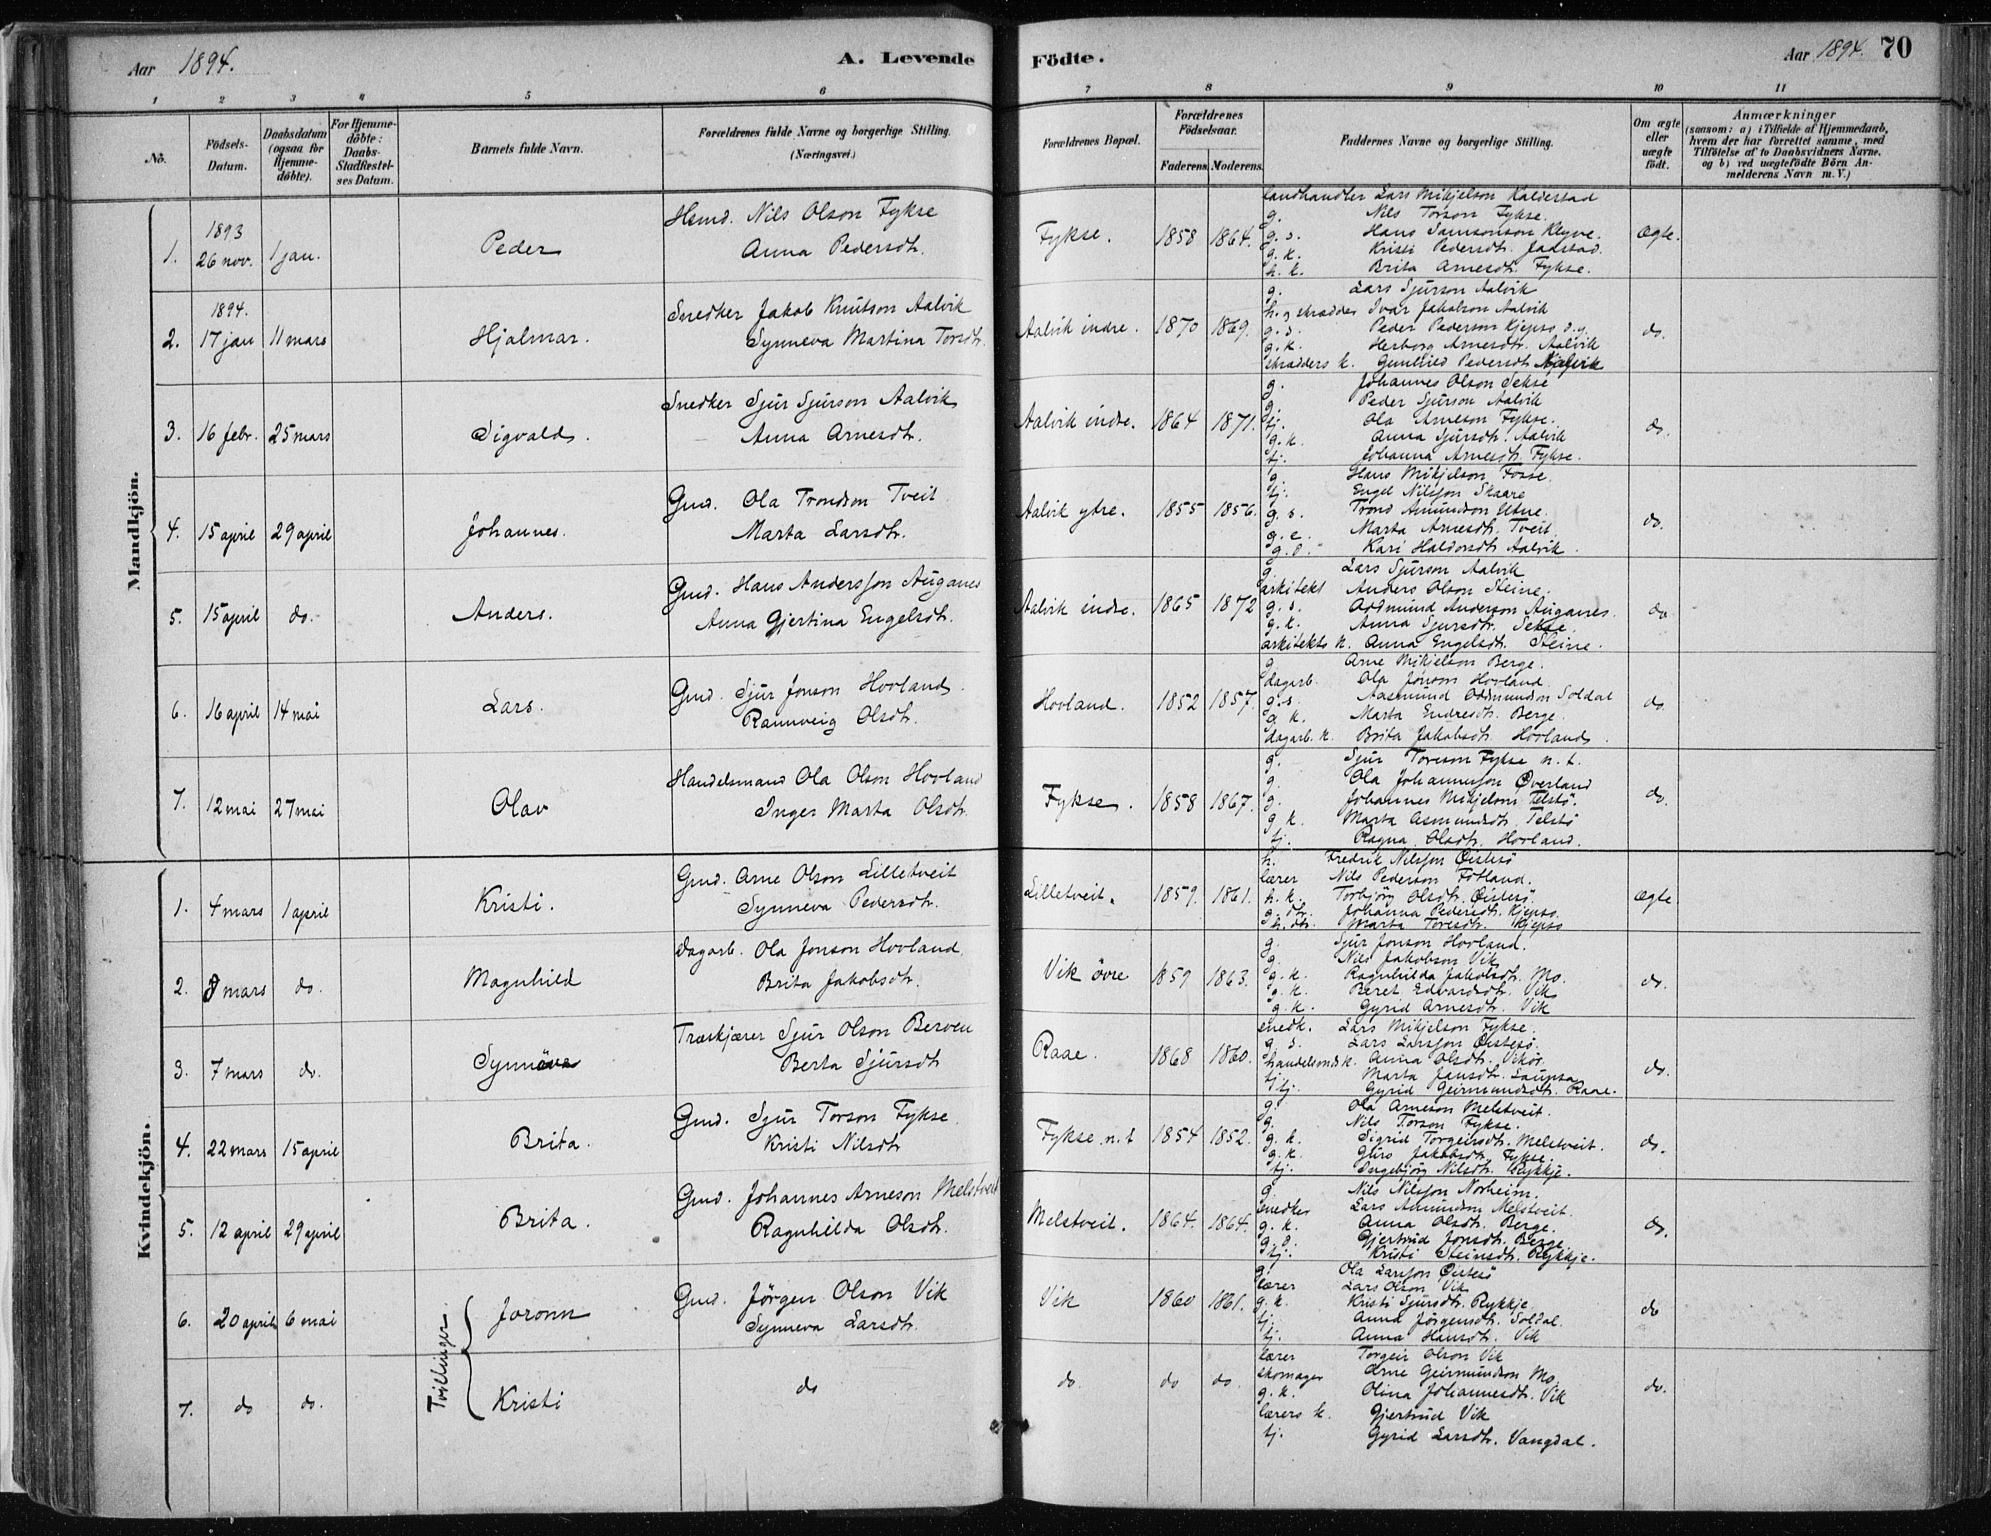 Aar 1894. A. Levende Födte. Aar 1894. 70
1 2 3 4 5 6 7 8 9 10 11
No. Födsels-Datum. Daabsdatum (ogsaa for Hjemmedöbte). For Hjemmedöbte: Daabs-Stadfæstelses Datum. Barnets fulde Navn. Forældrenes fulde Navne og borgerlige Stilling. (Næringsvei.) Forældrenes Bopæl. Forældrenes Födselsaar. Faderens. Moderens. Faddernes Navne og borgerlige Stilling. Om ægte eller uægte födt. Anmærkninger (saasom: a) i Tilfælde af Hjemmedaab, hvem der har forrettet samme, med Tilföielse af to Daabsvidners Navne, og b) ved uægtefödte Börn Anmelderens Navn m. V.)
Mandkjön.
1. 1893 26 nov. 1 jan. Peder Hsmd. Nils Olson Fykse
Anna Pedersdtr. Fykse. 1858 1864. ægte.
landhandler Lars Mikjelson Kaldestad
g. Nils Torson Fykse.
g. s. Hans Samsonson Kleyve.
g. k. Kristi Pedersdtr. Jaastad.
h. k. Brita Arnesdtr. Fykse.
2. 1894. 17 jan 11 mars Hjalmar. Snedker Jakob Knutson Aalvik
Synneva Martina Torsdtr. Aalvik indre. 1870 1869. do.
g. Lars Sjurson Aalvik
h. og skrædder Ivar Jakobson Aalvik
g. s. Peder Pederson Kjepso
g. k. Herborg Arnesdtr. Aalvik
skrædders k. Gunhild Pedersdtr. Aalvik
3. 16 febr. 25 mars Sigvald. Snedker Sjur Sjurson Aalvik
Anna Arnesdtr. Aalvik indre. 1864 1871. do.
g. Johannes Olson Sekse
g. Peder Sjurson Aalvik
tj. Ola Arneson Fykse.
g. k. Anna Sjursdtr. Aalvik
tj. Johanna Arnesdtr. Fykse.
4. 15 april 29 april Johannes. Gmd. Ola Trondson Tveit
Marta Larsdtr. Aalvik ytre. 1855 1856. do.
g. Hans Mikjelson Fosse.
tj. Engel Nilsson Skaare
g. s. Trond Amundson Utne.
g. e. Marta Arnesdtr. Tveit.
g. d. Kari Haldorsdtr. Aalvik.
5. 15 april do. Anders. Gmd. Hans Andersson Auganes
Anna Gjertina Engelsdtr. Aalvik indre. 1865 1872 do
g. Lars Sjurson Aalvik
arkitekt Anders Olson Steine.
g. s. Oddmund Anderson Auganes.
g. k. Anna Sjursdtr. Sekse.
arkitekts k. Anna Engelsdtr. Steine.
6. 16 april 14 mai Lars. Gmd. Sjur Jonson Hovland.
Rannveig Olsdtr. Hovland. 1852 1857. do.
g. Arne Mikjelson Berge.
dagarb. Ola Jonson Hovland
g. s. Aasmund Oddmundson Soldal
g. k. Marta Endresdtr. Berge.
dagarb. k. Brita Jakobsdtr. Hovland.
7. 12 mai 27 mai Olav Handelsmand Ola Olson Hovland
Inger Marta Olsdtr. Fykse. 1858 1867. do.
g. Sjur Torson Fykse n. t.
g. Ola Johannesson Øverland
g. Johannes Mikjelson Telstö.
g. k. Marta Asmundsdtr. Telstö
tj. Ragna Olsdtr. Hovland.
Kvindekjön.
1. 4 mars 1 april Kristi. Gmd. Arne Olson Lilletveit
Synneva Pedersdtr. Lilletveit. 1859. 1861. ægte
h. Fredrik Nilsson Öistesö
lærer Nils Pederson Fötland.
h. k. Torbjörg Olsdtr. Öistesö.
g. dtr. Johanna Pedersdtr. Kjepso.
h. dtr. Marta Toresdtr. Kjepso
2. 8 mars do. Magnhild Dagarb. Ola Jonson Hovland
Brita Jakobsdtr. Vik övre 1859 1863. do.
g. Sjur Jonson Hovland.
g. Nils Jakobson Vik
g. k. Ragnhilda Jakobsdtr. Mo.
g. k. Beret Edvardsdtr. Vik
g. k. Gyrid Arnesdtr. Vik
3. 7 mars do. Synnöva Træskjærer Sjur Olson Berven
Berta Sjursdtr Raae. 1868 1860. do.
snedk. Lars Mikjelson Fykse.
g. s. Lars Larsson Öistesö.
handelsmds k. Anna Olsdtr. Vikör.
tj. Marta Jansdtr. Laupsa
tj. Gyrid Geirmundsdtr. Raae.
4. 22 mars 15 april Brita. Gmd. Sjur Torson Fykse
Kristi Nilsdtr Fykse n. t 1854 1852. do.
g. Ola Arneson Melstveit.
g. Nils Torson Fykse.
g. k. Sigrid Torgeirsdtr. Melstveit.
g. k. Guro Jakobsdtr. Fykse.
tj. Ingebjörg Nilsdtr. Rykkje.
5. 12 april 29 april Brita. Gmd. Johannes Arneson Melstveit
Ragnhilda Olsdtr. Melstveit. 1864. 1864. do.
g. Nils Nilsson Norheim.
snedker Lars Amundson Melstveit.
g. k. Anna Olsdtr. Berge.
g. g. Gjertrud Jonsdtr. Berge.
tj. Kristi Steinsdtr. Rykkje.
6. 20 april 6 mai Tvillinger Joronn Gmd. Jörgen Olson Vik
Synneva Larsdtr. Vik 1860 1861. do
g. Ola Larsson Öistesö
lærer Lars Olson Vik
g. k. Kristi Sjursdtr. Rykkje.
tj. Anna Jörgensdtr. Soldal.
tj. Anna Hansdtr. Vik
7. do do. Kristi do do. do do. do.
lærer Torgeir Olson Vik
skomager Arne Geirmundson Mo.
g. k. Olina Johannesdtr. Vik
lærers k. Gjertrud Vik
tj. Gyrid Larsdtr. Vangdal.